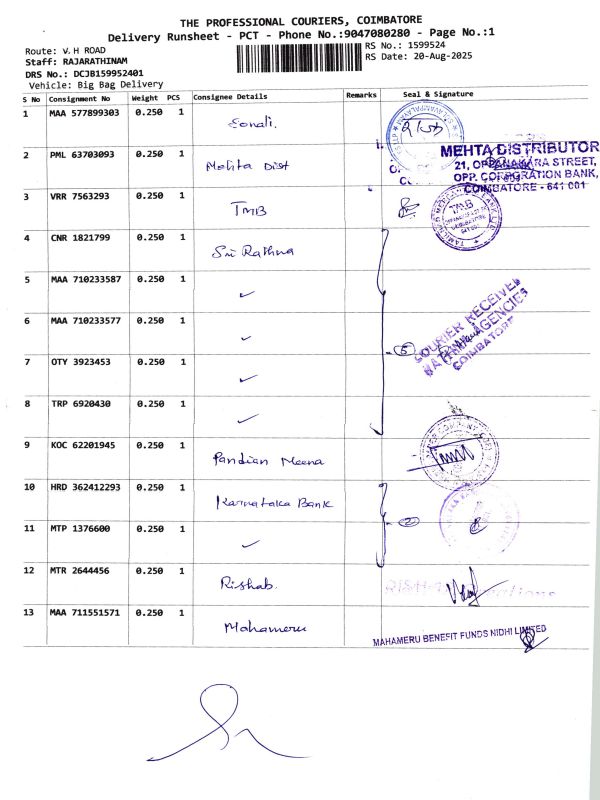 THE PROFESSIONAL COURIERS, COIMBATORE
Delivery Runsheet - PCT - Phone No.:9047080280 - Page No.:1
Route: V.H ROAD
RS No.: 1599524
Staff: RAJARATHINAM
RS Date: 20-Aug-2025
DRS No.: DCJB159952401
Vehicle: Big Bag Delivery
S No Consignment No Weight PCS Consignee Details Remarks Seal & Signature
1 MAA 577899303 0.250 1 Sonali.
2 PML 63703093 0.250 1 Mehta Dist
MEHTA DISTRIBUTOR
21, OPPANAKARA STREET,
OPP. CORPORATION BANK,
COIMBATORE - 641 001
3 VRR 7563293 0.250 1 TMB
TMB
4 CNR 1821799 0.250 1 Sri Rathna
5 MAA 710233587 0.250 1 ✓
6 MAA 710233577 0.250 1 ✓
5
COURIER RECEIVED
AGENCIES
COIMBATORE
7 OTY 3923453 0.250 1 ✓
8 TRP 6920430 0.250 1 ✓
9 KOC 62201945 0.250 1 Pandian Meena
10 HRD 362412293 0.250 1 Karnataka Bank
2
11 MTP 1376600 0.250 1 ✓
12 MTR 2644456 0.250 1 Rishab.
13 MAA 711551571 0.250 1 Mahameru
MAHAMERU BENEFIT FUNDS NIDHI LIMITED